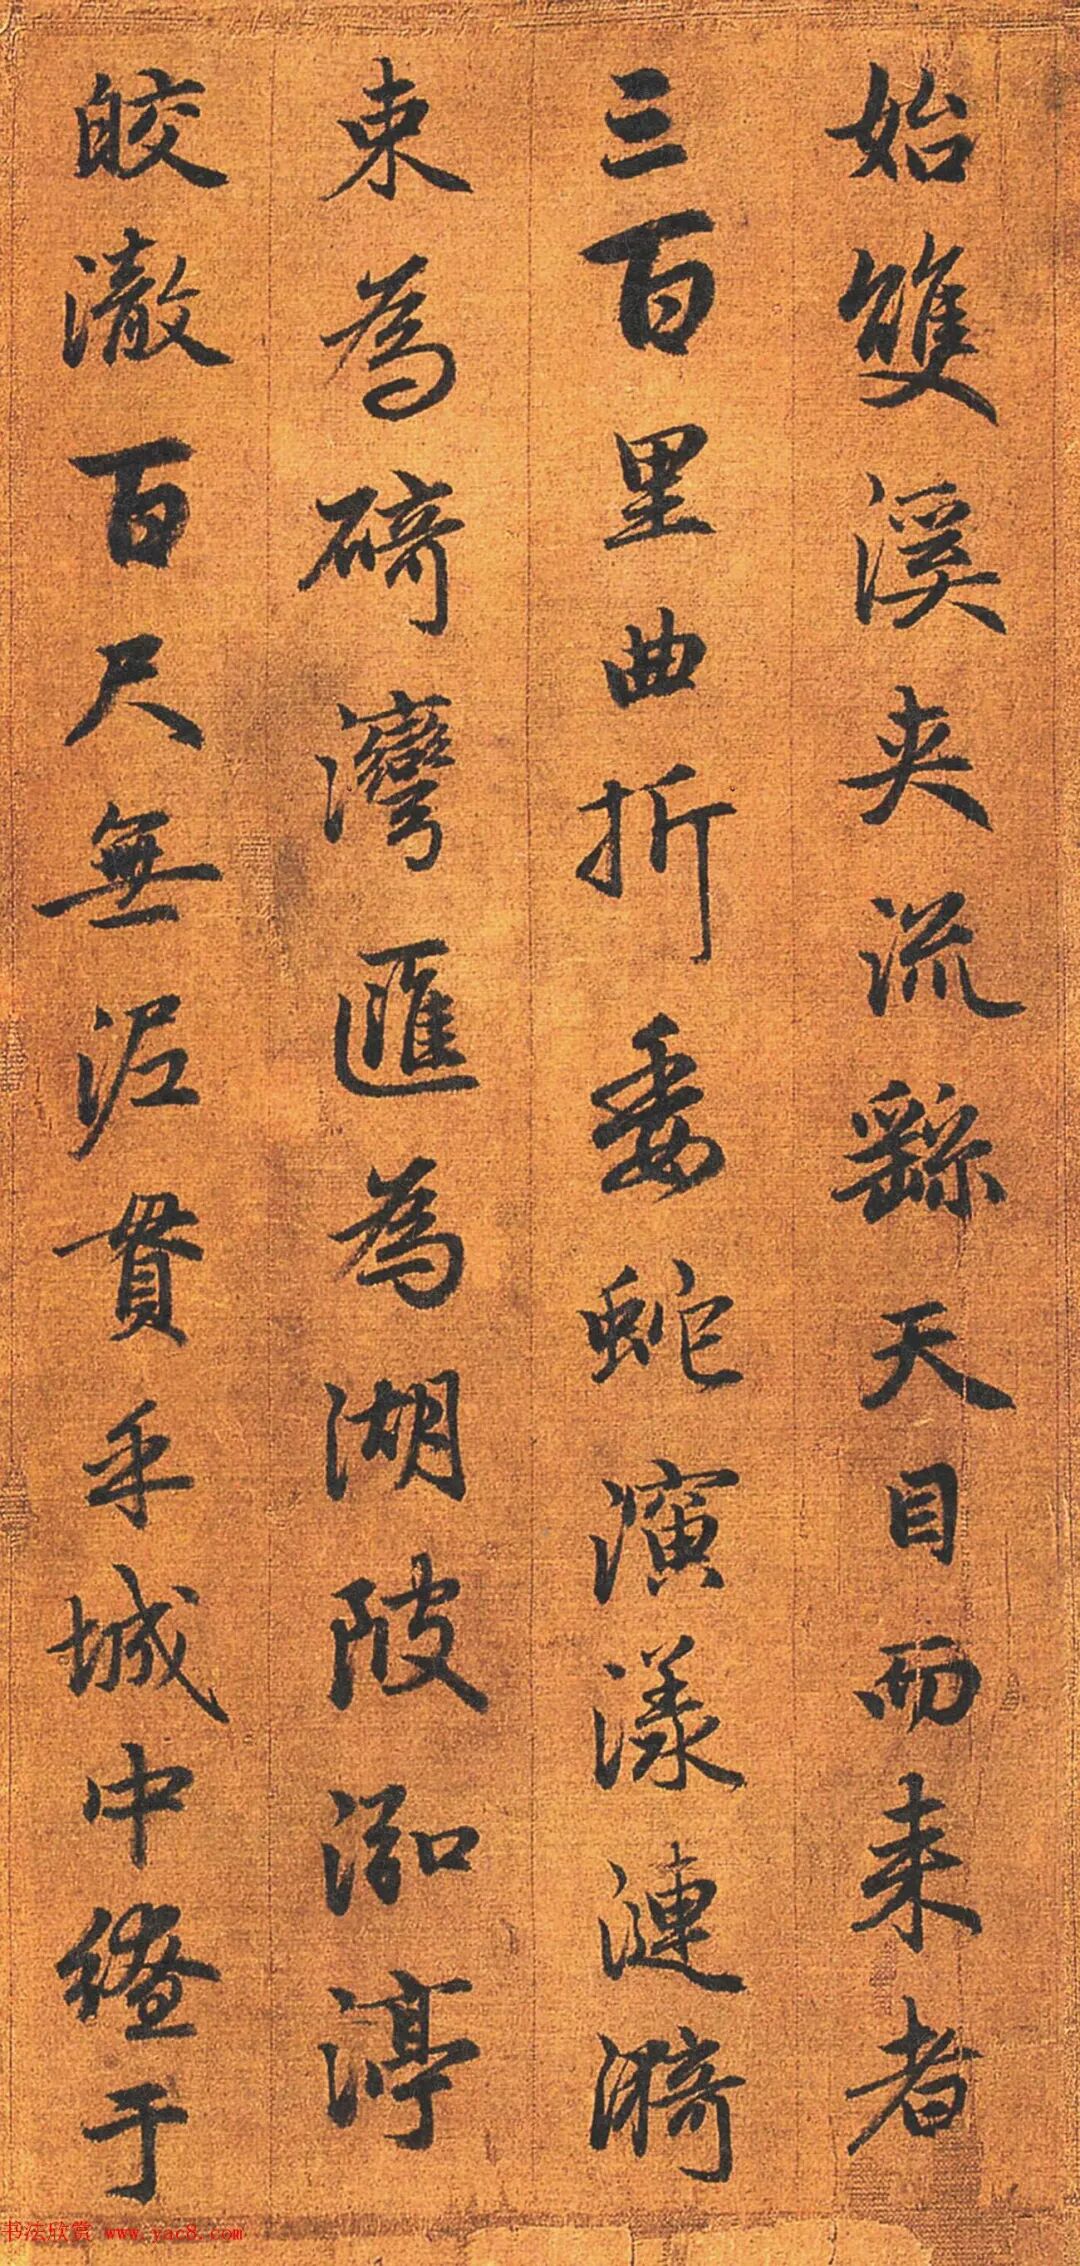 始雙溪夾流繇天目而来者
三百里曲折委蛇演漾漣漪
束為碕灣匯為湖陂泓渟
皎澈百尺無泥貫乎城中繚于
书法欣赏 www.yac8.com